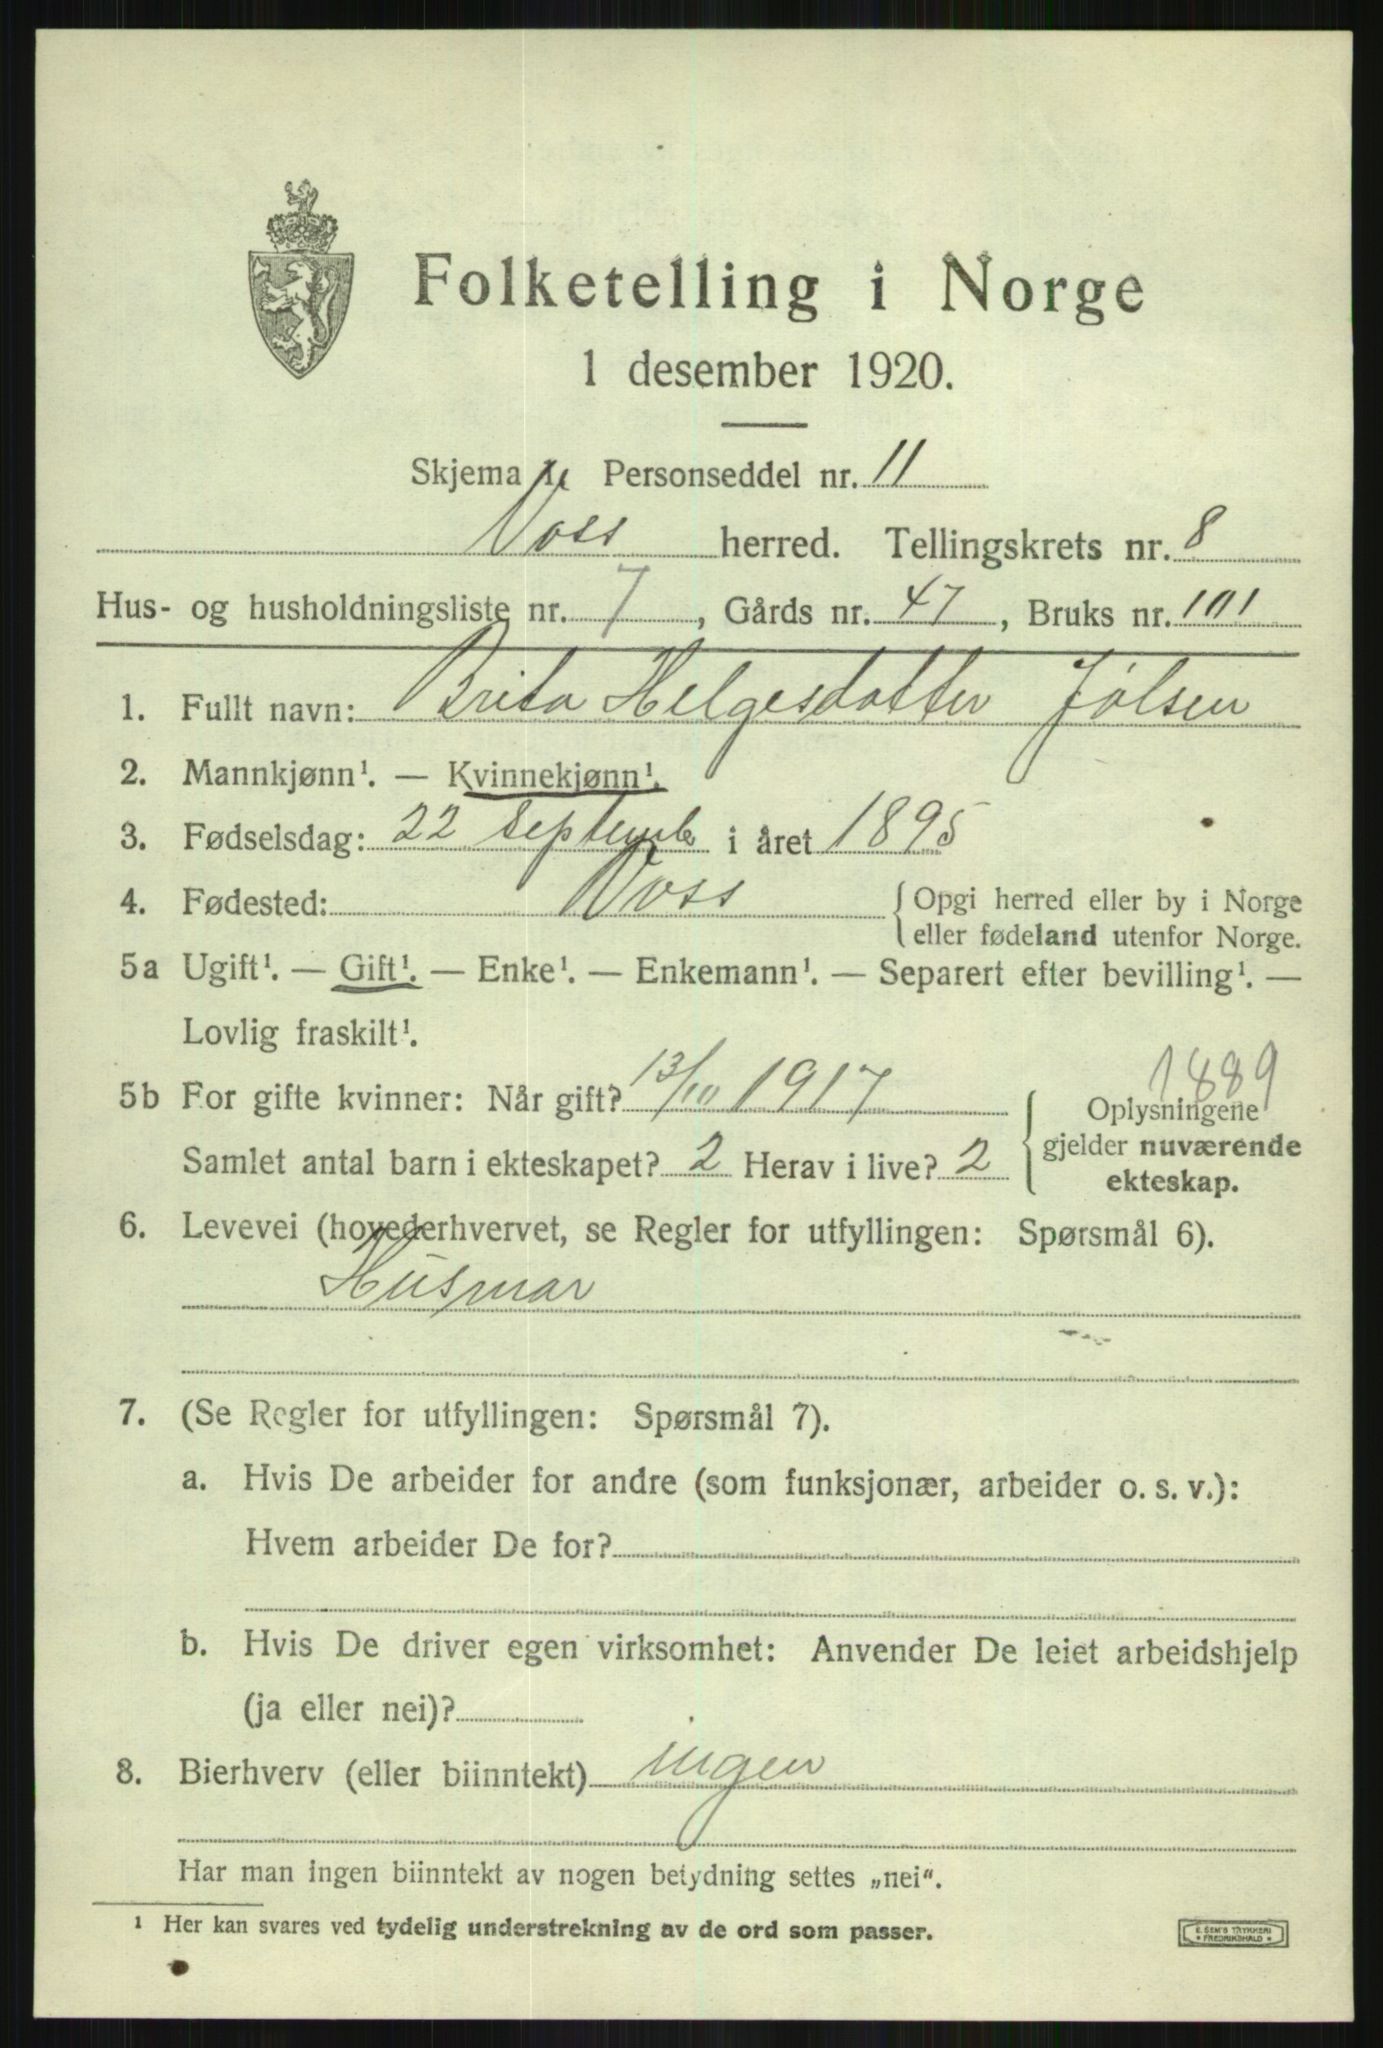 Folketelling i Norge
1 desember 1920.
Skjema 1. Personseddel nr. 11
Voss herred. Tellingskrets nr. 8
Hus- og husholdningsliste nr. 7, Gårds nr. 47, Bruks nr. 101
1. Fullt navn: Brita Helgesdotter Jølsen
2. Mannkjønn¹. — Kvinnekjønn¹.
3. Fødselsdag: 22 septemb i året 1895
4. Fødested: Voss { Opgi herred eller by i Norge
eller fødeland utenfor Norge.
5a Ugift¹. — Gift¹. — Enke¹. — Enkemann¹. — Separert efter bevilling¹. —
Lovlig fraskilt¹.
1889
5b For gifte kvinner: Når gift? 13/10 1917 { Oplysningene
gjelder nuværende
ekteskap.
Samlet antal barn i ekteskapet? 2 Herav i live? 2
6. Levevei (hovederhvervet, se Regler for utfyllingen: Spørsmål 6).
Husmor
7. (Se Regler for utfyllingen: Spørsmål 7).
a. Hvis De arbeider for andre (som funksjonær, arbeider o. s. v.):
Hvem arbeider De for?
b. Hvis De driver egen virksomhet: Anvender De leiet arbeidshjelp
(ja eller nei)?
8. Bierhverv (eller biinntekt) ingen
Har man ingen biinntekt av nogen betydning settes „nei“.
¹ Her kan svares ved tydelig understrekning av de ord som passer.
E. SEM'S TRYKKERI
* FREDRIKSHALD *